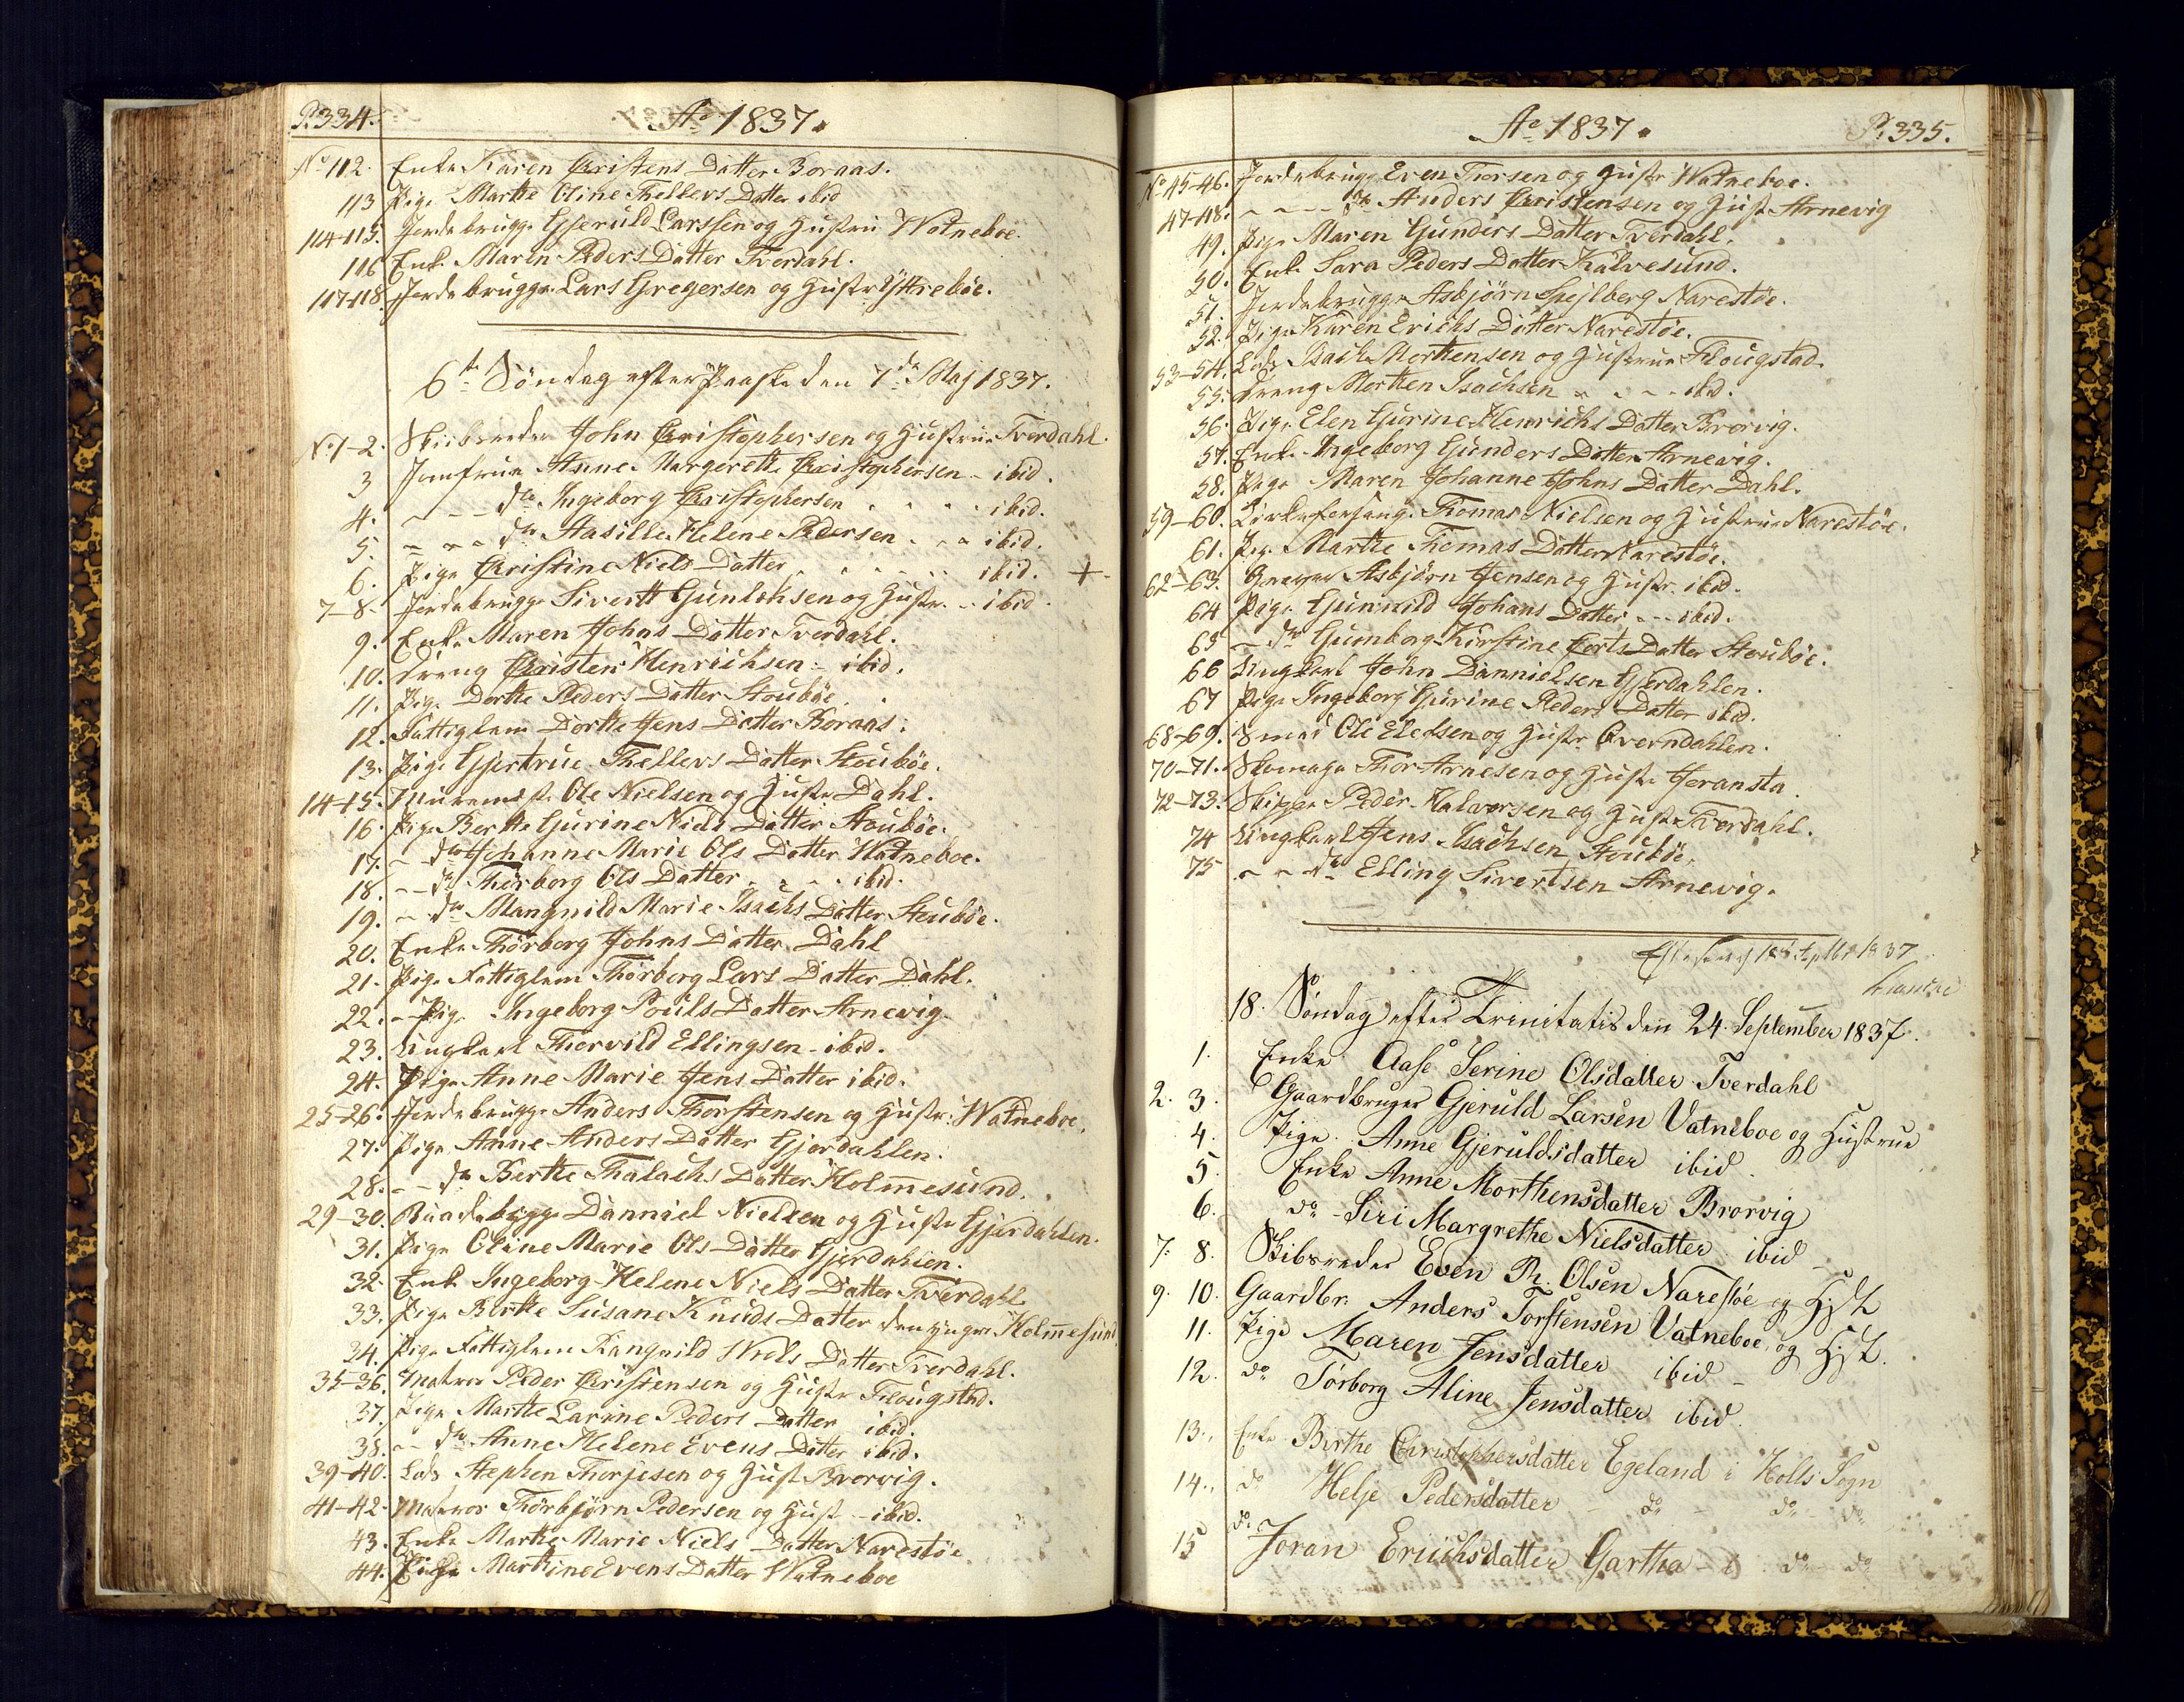 P. 334. Ao 1837.
No 112. Enke Karen Christens Datter Boraas.
113 Pige Marthe Oline Thellevs Datter ibid
114-115. Jordebrugger Gjeruld Larssen og Hustrue Watneboe.
116 Enke Maren Peders Datter Tverdahl.
117-118 Jordebrugger Lars Gregersen og Hustr. Yttrebøe.
6te Søndag efter Paaske den 7de Maj 1837.
No 1-2. Skibsreder John Christophersen og Hustrue Tverdahl.
3 Jomfrue Anne Margrethe Christophersen - ibid.
4. - - - do Ingeborg Christophersen . . . . ibid.
5. - - - do Aasille Helene Pedersen . . . ibid.
6. Pige Christine Niels Datter . . . . . ibid. +
7-8. Jordebrugger Sivertt Gunlehsen og Hustr. . . ibid.
9. Enke Maren Johns Datter Tverdahl.
10. Dreng Christen Henrichsen - ibid.
11. Pige Dorthe Peders Datter Stoubøe.
12. Fattiglem Dorthe Jens Datter Boraas.
13. Pige Gjertrue Thellevs Datter Stoubøe.
14-15. Muurmest. Ole Nielsen og Hustr. Dahl.
16. Pige Berthe Gurine Niels Datter Stoubøe.
17. - do Johanne Marie Ols Datter Watneboe.
18. - - do Thorborg Ols Datter . . . . ibid.
19. - do Mangnild Marie Isachs Datter Stoubøe.
20. Enke Thørborg Johns Datter Dahl
21. Pige Fattiglem Thørborg Lars Datter Dahl.
22. - Pige Ingeborg Pouls Datter Arnevig.
23. Ungkarl Thorvild Ellingsen - ibid.
24. Pige Anne Marie Jens Datter ibid.
25-26. Jordebrugger Anders Thorstensen og Hustr. Watneboe.
27. Pige Anne Anders Datter Gjerdahlen.
28. - - do Berthe Thalachs Datter Holmesund.
29-30. Danniel Nielsen og Hustr Gjerdahlen.
31. Pige Oline Marie Ols Datter Gjerdahlen.
32. Enke Ingeborg Helene Niels Datter Tverdahl
33. Pige Birthe Susane Knuds Datter den yngre Holmesund
34. Pige Fattiglem Rangnild Niels Datter Tverdahl.
35-36. Matros Peder Christensen og Hustr Flougstad.
37. Pige Marthe Larine Peders Datter ibid.
38. - - do Anne Helene Evens Datter ibid.
39-40. Lods Stephen Thorjesen og Hust Brorvig.
41-42. Matros Thorbjørn Pedersen og Hust - ibid.
43. Enke Marthe Marie Niels Datter Narestøe
44. Pige Marthine Evens Datter Watneboe
Ao 1837. P. 335.
No 45-46. Jordebrugg. Even Thorsen og Hustr Watneboe.
47-48. - - - - do Anders Christensen og Hust Arnevig
49. Pige Maren Gunders Datter Tverdahl.
50. Enke Sara Peders Datter Kalvesund.
51. Jordebrugger Asbjørn Spejlberg Narestøe.
52. Pige Karen Erichs Datter Narestøe.
53-54. Lods Isach Morthensen og Hustrue Flougstad.
55. Dreng Morthen Isachsen - . - - ibid.
56. Pige Elen Gurine Henrichs Datter Brorvig.
57. Enke Ingeborg Gunders Datter Arnevig.
58. Pige Maren Johanne Johns Datter Dahl.
59-60. Kirkesang. Thomas Nielsen og Hustrue Narestøe.
61. Pig. Marthe Thomas Datter Narestøe.
62-63. Asbjørn Jensen og Hustr. ibid.
64 Pige Gunnild Johans Datter - - - ibid.
65 - do Gumborg Kirstine Certs Datter Stoubøe.
66 Ungkarl John Dannielsen Gjerdahlen.
67 Pige Ingeborg Gurine Peders Datter ibid.
68-69. Smed Ole Elefsen og Hustr Qverndahlen.
70-71. Skomager Thor Arnesen og Hustr Jeransta.
72-73. Skipper Peder Halvorsen og Hustr Tverdahl.
74 Ungkarl Jens Isachsen Stoubøe.
75 - - - do Elling Sivertsen Arnevig.
1837
18. Søndag efter Trinitatis den 24. September 1837.
1. Enke Aase Serine Olsdatter Tverdahl
2. 3. Gaardbruger Gjeruld Larsen Vatneboe og Hustrue
4. Pige Anne Gjeruldsdatter ibid.
5. Enke Anne Morthensdatter Brorvig
6. do - Siri Margrethe Nielsdatter ibid
7. 8. Skibsreder Even Th. Olsen Narestøe og Hst
9. 10. Gaardbr. Anders Torstensen Vatneboe og Hst.
11. Pige Maren Jensdatter ibid -
12. do Torborg Aline Jensdatter ibid.
13., Enke Birthe Christophersdatter Egeland i Holts Sogn
14., do Helje Pedersdatter do - do - do
15 do Joran Erichsdatter Gartha - i do - do